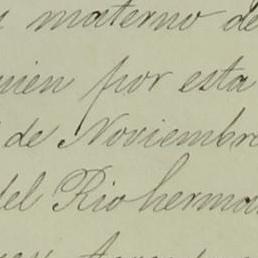 materno de
quien por esta
de Noviembre
del Rio herma